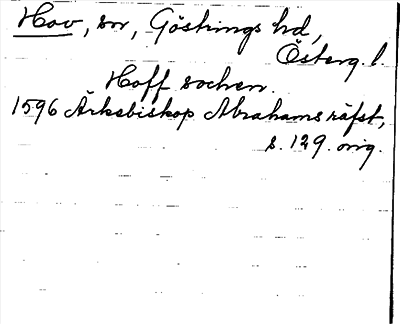 Hov, sn, Göstrings hd,
Österg. l.
Hoff sochen.
1596 Ärkebiskop Abrahams räfst,
s. 129. orig.